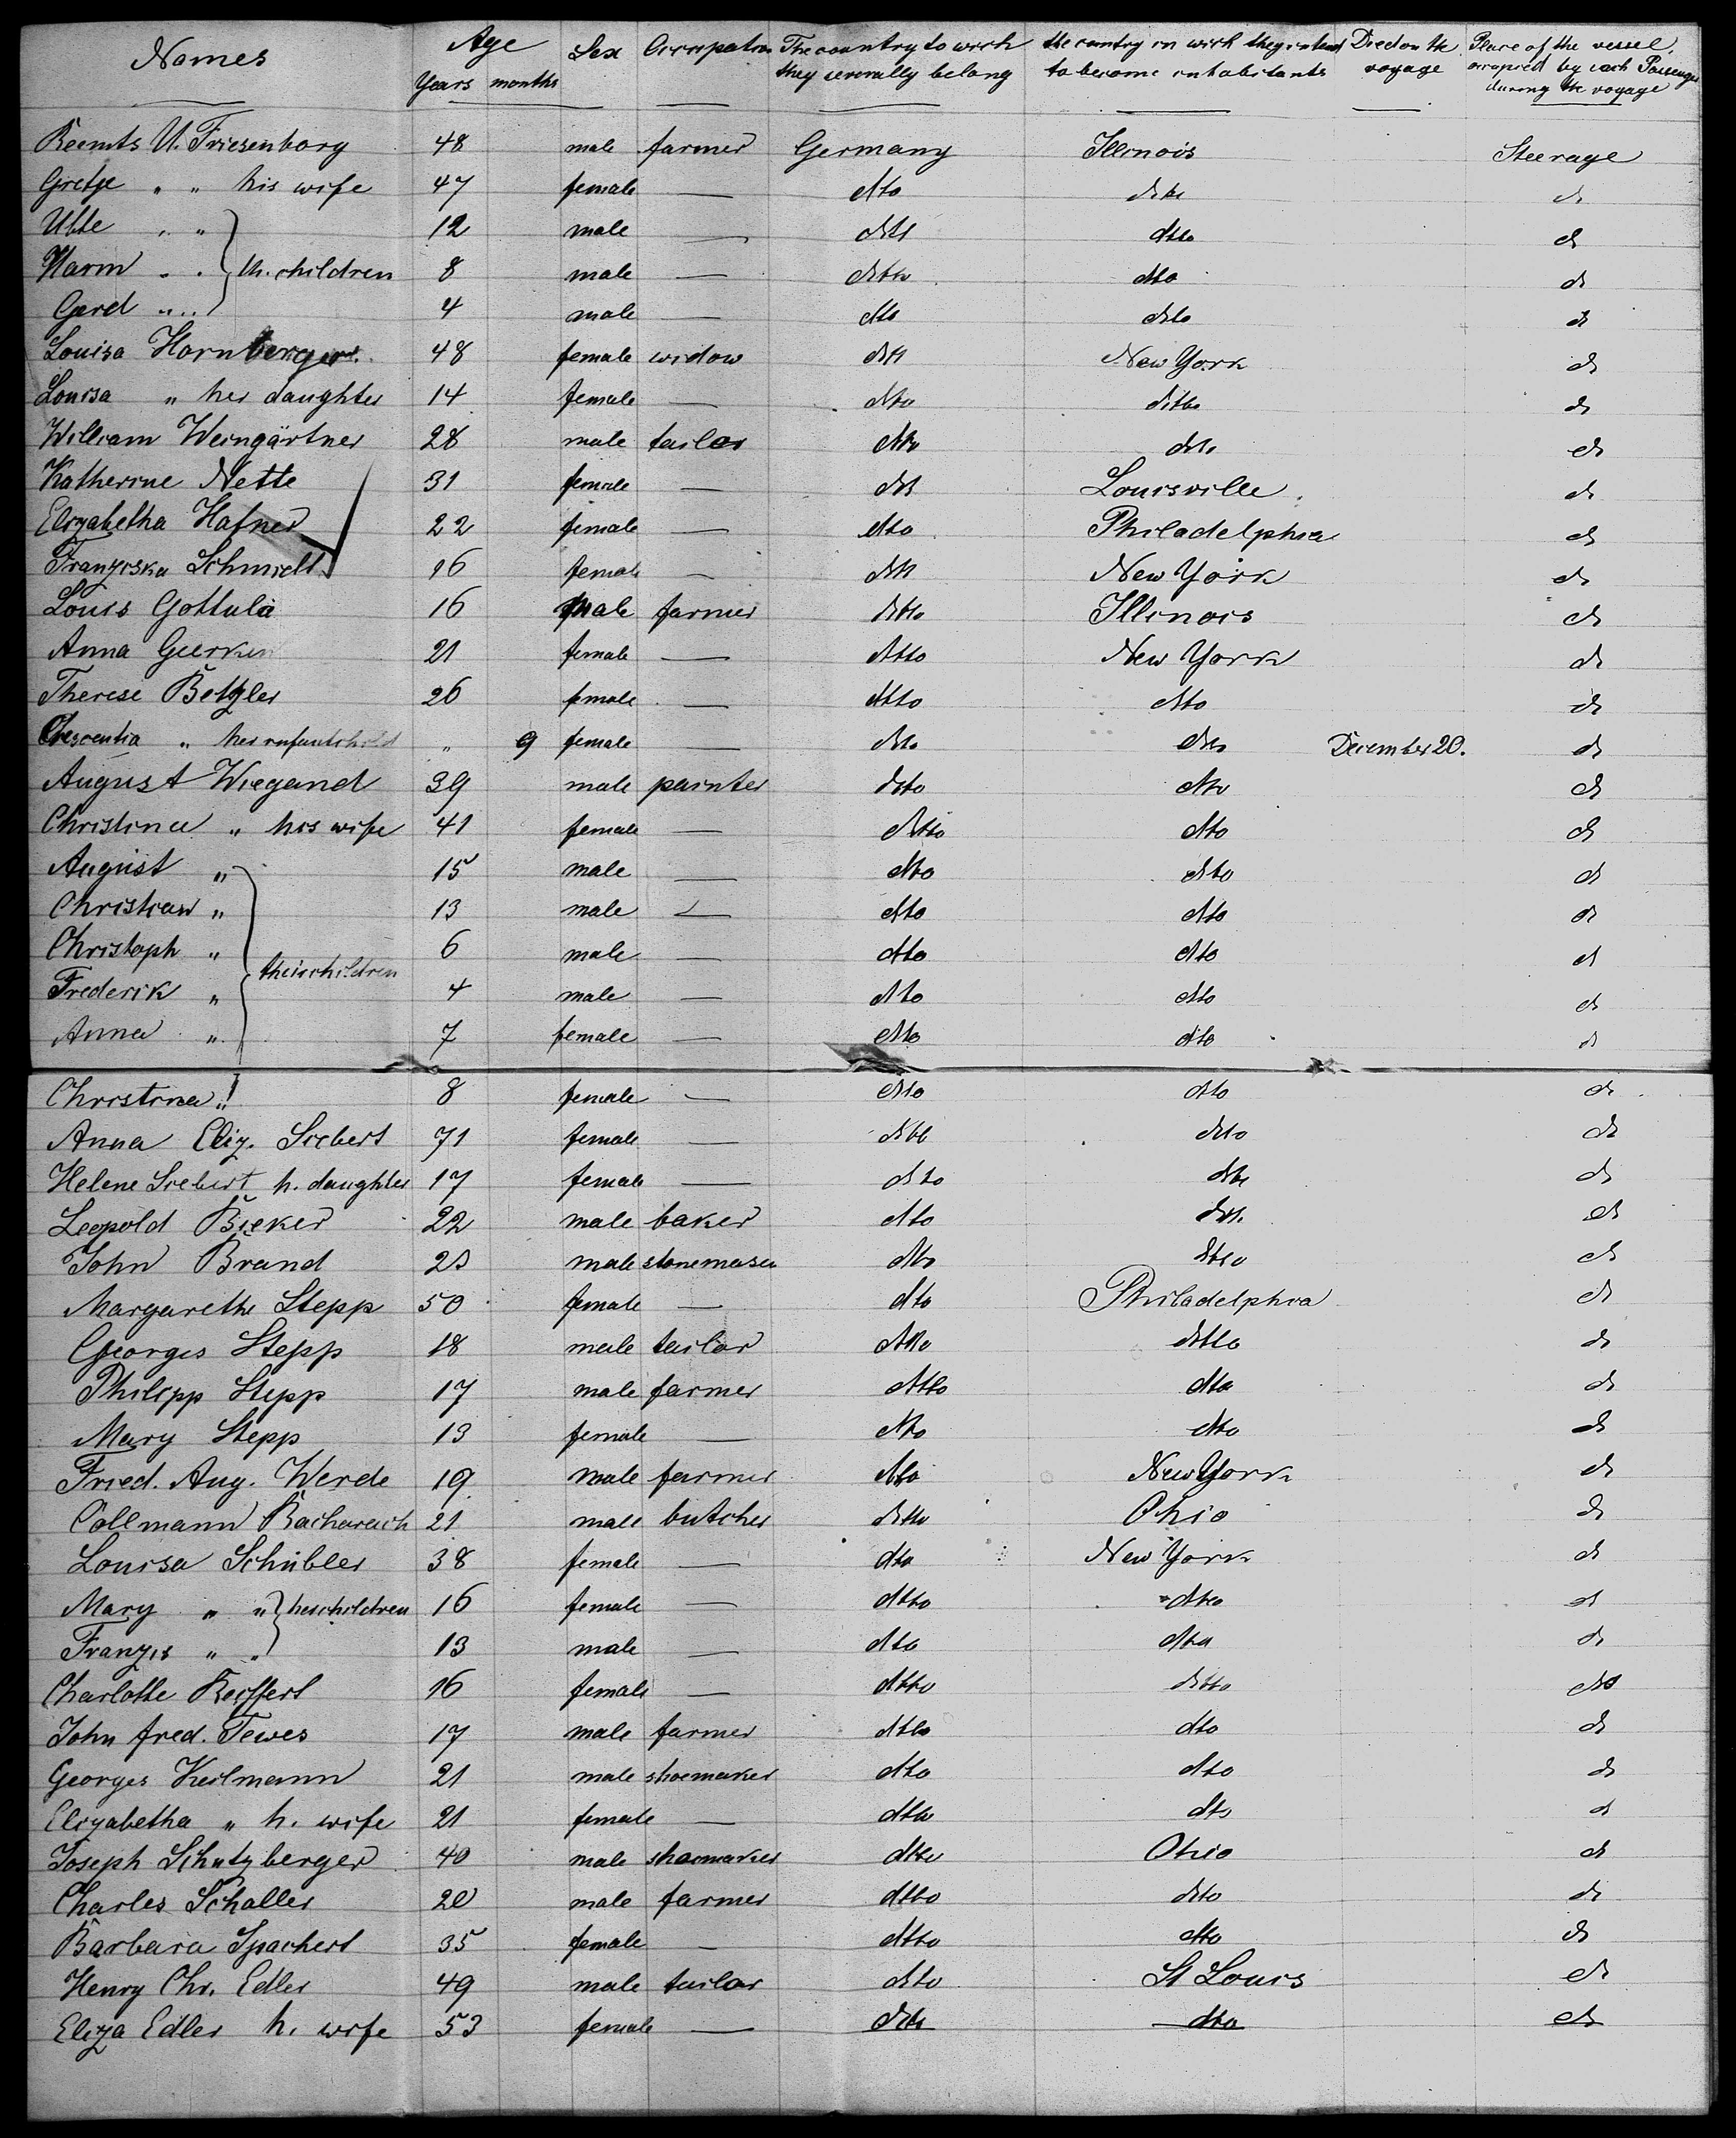 Names Age Sex Occupation The country to wich the country in wich they intend Died on the Place of the vessel
Years months they severally belong to become inhabitants voyage occupied by each Passenger
during the voyage
Reemts U. Friesenborg 48 male farmer Germany Illinois Steerage
Gretje " " his wife 47 female — dto ditto d
Ubbe " " 12 male — dtto dtto d
Harm " " th. children 8 male — ditto dto d
Gerd " " 4 male — dto dito d
Louisa Hornberger 48 female widow dtto New York d
Louisa " her daughter 14 female — dtto ditto d
William Weingärtner 28 male tailor dtto dito d
Katherine Nette 31 female — dtto Louisville d
Elizabetha Hafner 22 female — dtto Philadelphia d
Franziska Schmidt 16 female — dtto New York d
Louis Gottula 16 male farmer ditto Illinois d
Anna Geerken 21 female — ditto New York d
Therese Betzler 26 female — dtto dto d
Crescentia " her infant child " 9 female — dito dito December 20. d
August Wiegand 39 male painter dito dto d
Christina " his wife 41 female — ditto dto d
August " 15 male — dto dito d
Christian " 13 male — dto dto d
Christoph " 6 male — dto dto d
their children
Frederik " 4 male — dto dto d
Anna " 7 female — dto dto d
Christina " 8 female — dto dto d
Anna Eliz. Siebert 71 female — dtto dito d
Helene Siebert h. daughter 17 female — dito dto d
Leopold Bieker 22 male baker dto dito d
John Brand 23 male stonemason dto ditto d
Margarethe Stepp 50 female — dto Philadelphia d
Georges Stepp 18 male tailor dtto ditto d
Philipp Stepp 17 male farmer dtto dto d
Mary Stepp 13 female — dto dto d
Fried. Aug. Werde 19 male farmer dto New York d
Collmann Bacharach 21 male butcher ditto Ohio d
Louisa Schübler 38 female — dto New York d
Mary " " her children 16 female — dtto dtto d
Franzis " " 13 male — dto dto d
Charlotte Reiffert 16 female — dtto ditto dto
John fred. Tewes 17 male farmer dtto dto d
Georges Keilmann 21 male shoemaker dto dto d
Elizabetha " h. wife 21 female — dtto dto d
Joseph Schutzberger 40 male shoemaker dtto Ohio d
Charles Schaller 20 male farmer dtto dito d
Barbara Spachert 35 female — dtto dto d
Henry Chr. Edler 49 male tailor dito St Louis d
Eliza Edler h. wife 53 female — dito dto d